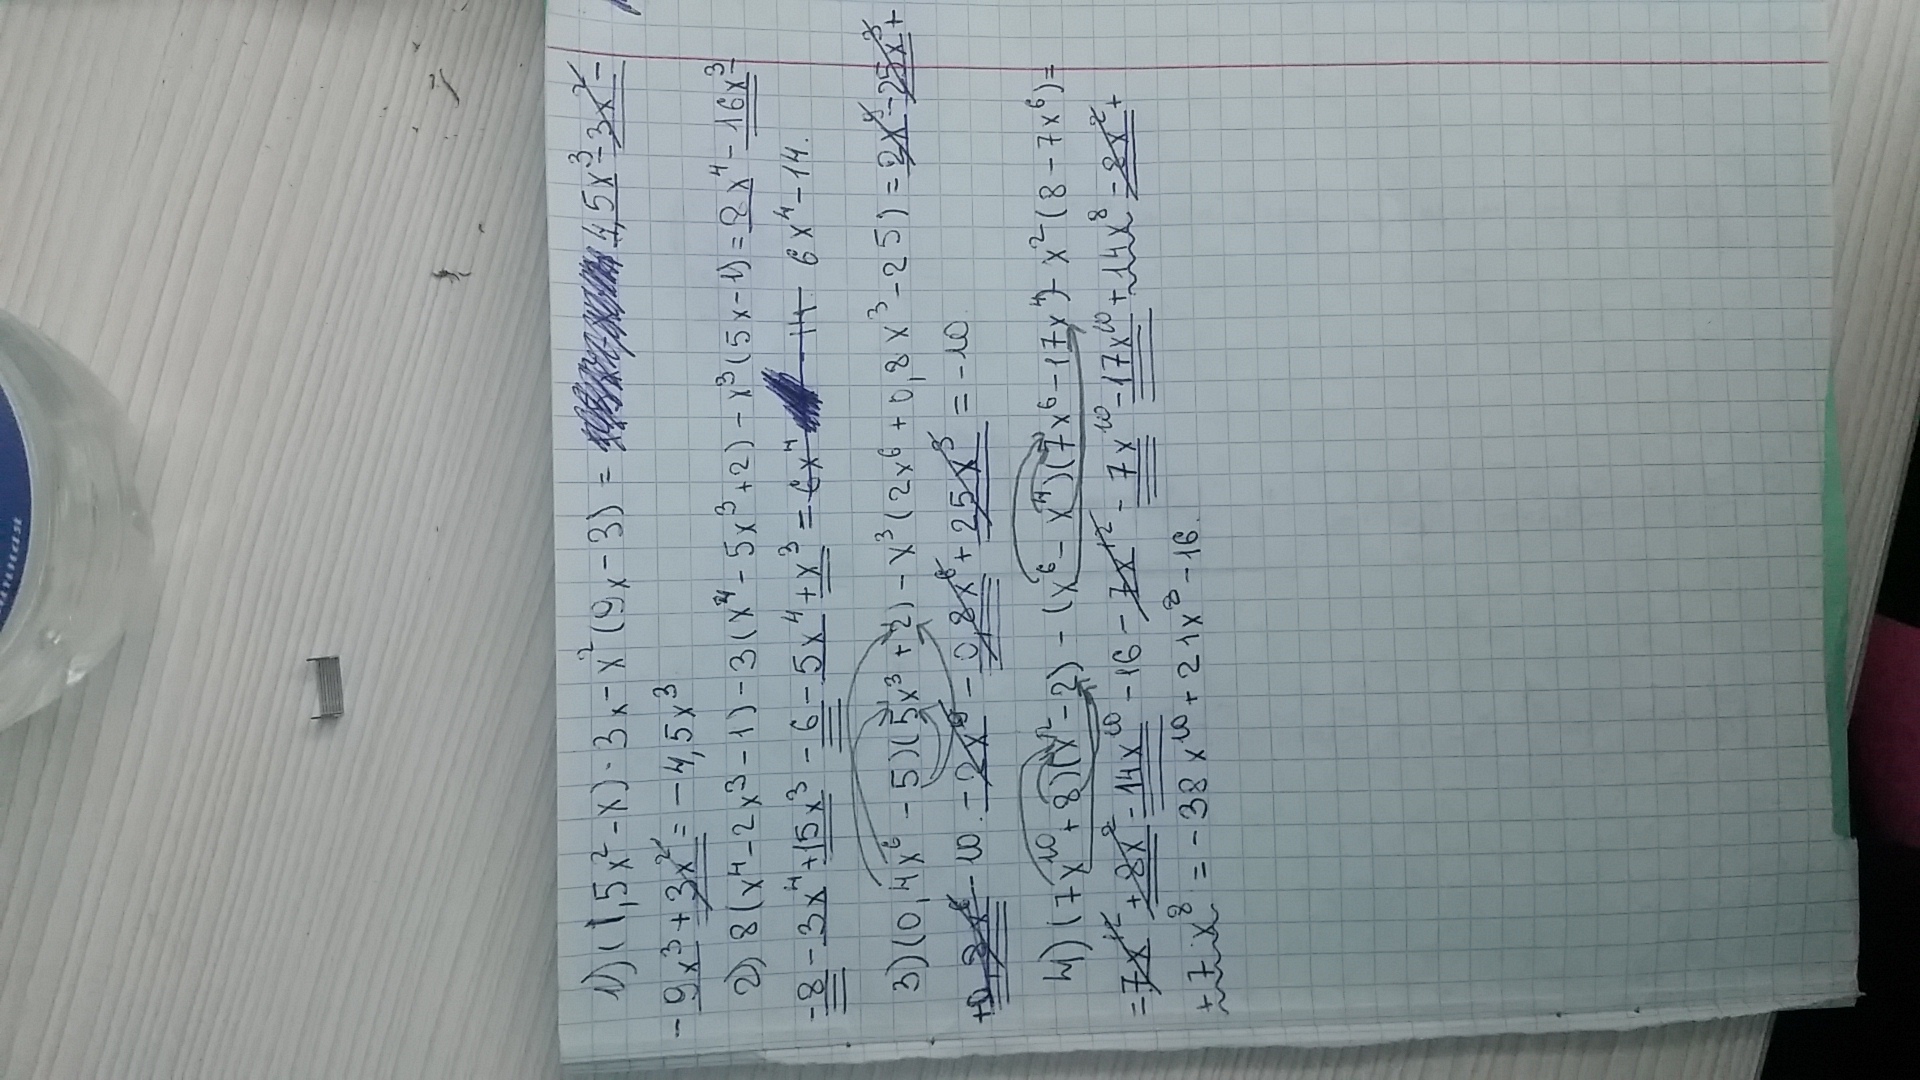 1) (1,5x² - x) · 3x - x² (9x - 3) = 4,5x³ - 3x² -
- 9x³ + 3x² = - 4,5x³
2) 8(x⁴ - 2x³ - 1) - 3(x⁴ - 5x³ + 2) - x³(5x - 1) = 8x⁴ - 16x³ -
- 8 - 3x⁴ + 15x³ - 6 - 5x⁴ + x³ = 6x⁴ - 14. 6x⁴ - 14.
3) (0,4x⁶ - 5)(5x³ + 2) - x³ (2x⁶ + 0,8x³ - 25) = 2x⁹ - 25x³ +
+ 0,8x⁶ - 10 - 2x⁹ - 0,8x⁶ + 25x³ = - 10.
4) (7x¹⁰ + 8)(x² - 2) - (x⁶ - x⁴)(7x⁶ - 17x⁴) - x² (8 - 7x⁶) =
= 7x¹² + 8x² - 14x¹⁰ - 16 - 7x¹² - 7x¹⁰ - 17x¹⁰ + 14x⁸ - 8x² +
+ 7x⁸ = - 38x¹⁰ + 21x⁸ - 16.